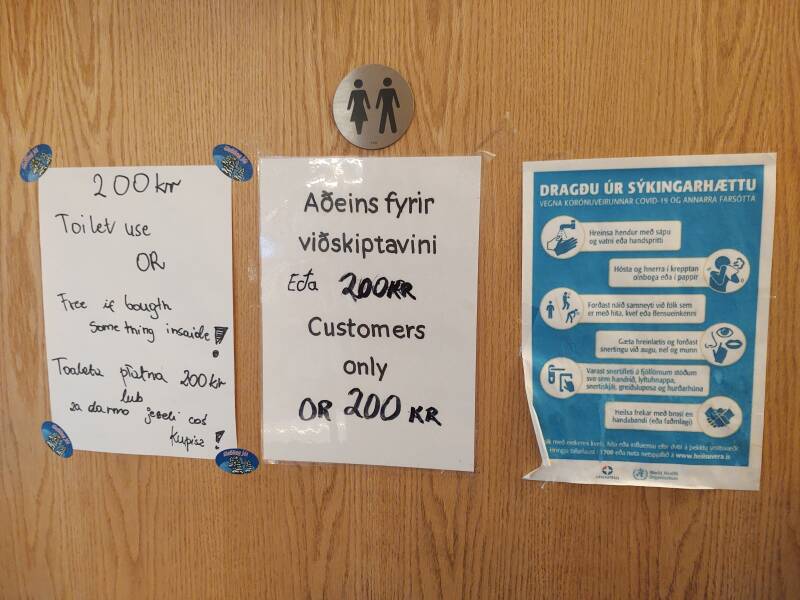 200kr
Toilet use
OR
Free if bougth
something insaide!
Toaleta płatna 200kr
lub
za darmo jeżeli coś
kupisz!
Aðeins fyrir
viðskiptavini
Eða 200KR
Customers
only
OR 200 KR
DRAGÐU ÚR SÝKINGARHÆTTU
VEGNA KÓRÓNUVEIRUNNAR COVID-19 OG ANNARRA FARSÓTTA
Hreinsa hendur með sápu
og vatni eða handspritti
Hósta og hnerra í krepptan
olnboga eða í pappír
Forðast náið samneyti við fólk sem
er með hita, kvef eða flensueinkenni
Gæta hreinlætis og forðast
snertingu við augu, nef og munn
Varast snertifleti á fjölförnum stöðum
svo sem handrið, lyftuhnappa,
snertiskjái, greiðsluposa og hurðarhúna
Heilsa frekar með brosi en
handabandi (eða faðmlagi)
1700 eða nota netspjallið á www.heilsuvera.is
World Health
Organization